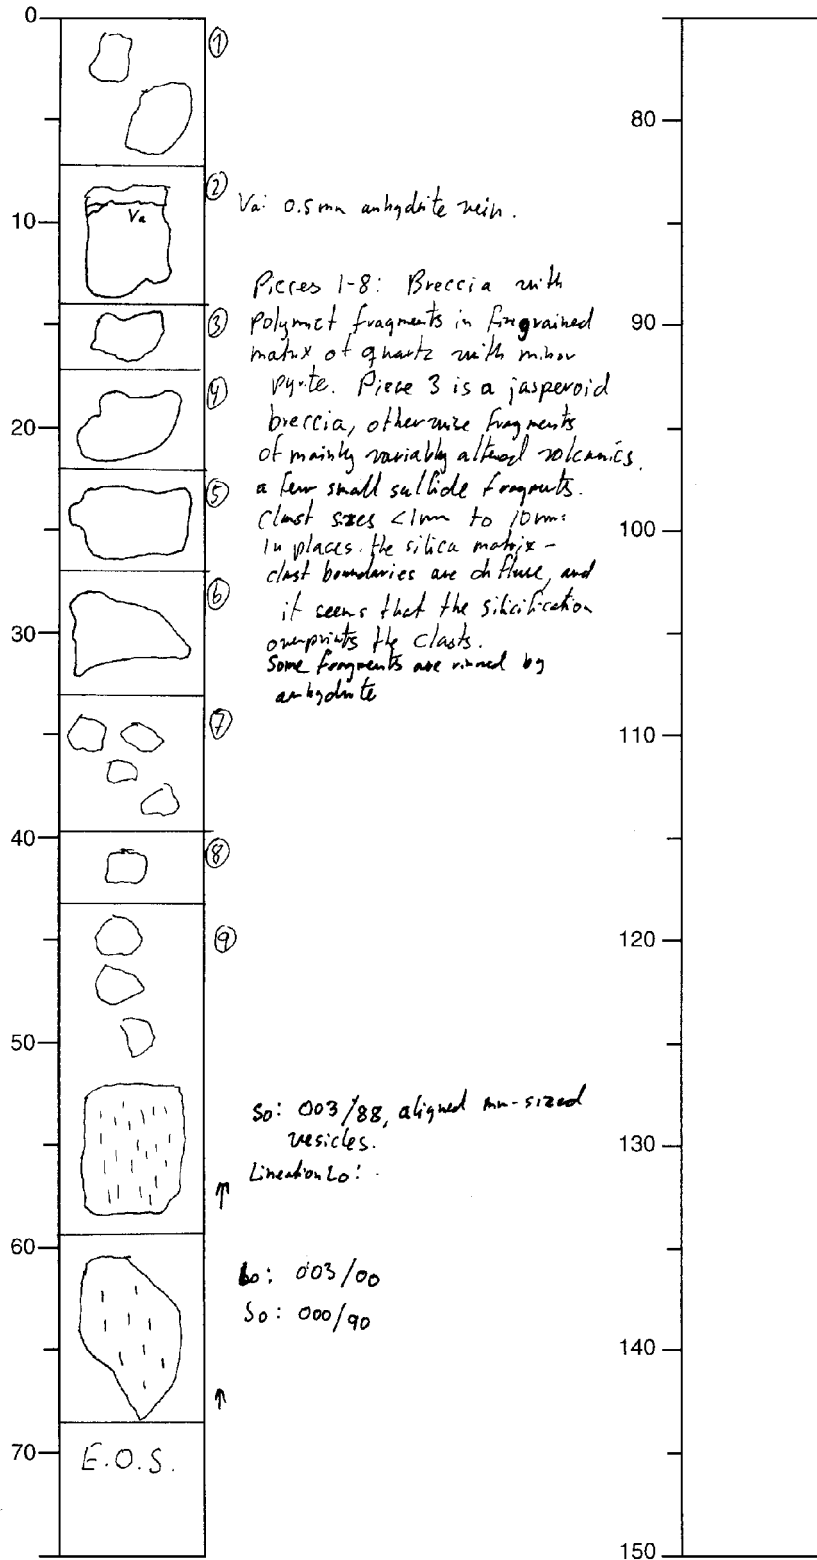 0
10
20
30
40
50
60
70
①
②
③
④
⑤
⑥
⑦
⑧
⑨
Va
Va: 0.5mm anhydrite vein.
Pieces 1-8: Breccia with
polymict fragments in finegrained
matrix of quartz with minor
pyrite. Piece 3 is a jasperoid
breccia, otherwise fragments
of mainly variably altered volcanics,
a few small sulfide fragments.
Clast sizes <1mm to 10mm.
In places the silica matrix-
clast boundaries are diffuse, and
it seems that the silicification
overprints the clasts.
Some fragments are rimmed by
anhydrite
So: 003/88, aligned mm-sized
vesicles.
Lineation Lo:
↑
Lo: 003/00
So: 000/90
↑
E.O.S.
80
90
100
110
120
130
140
150